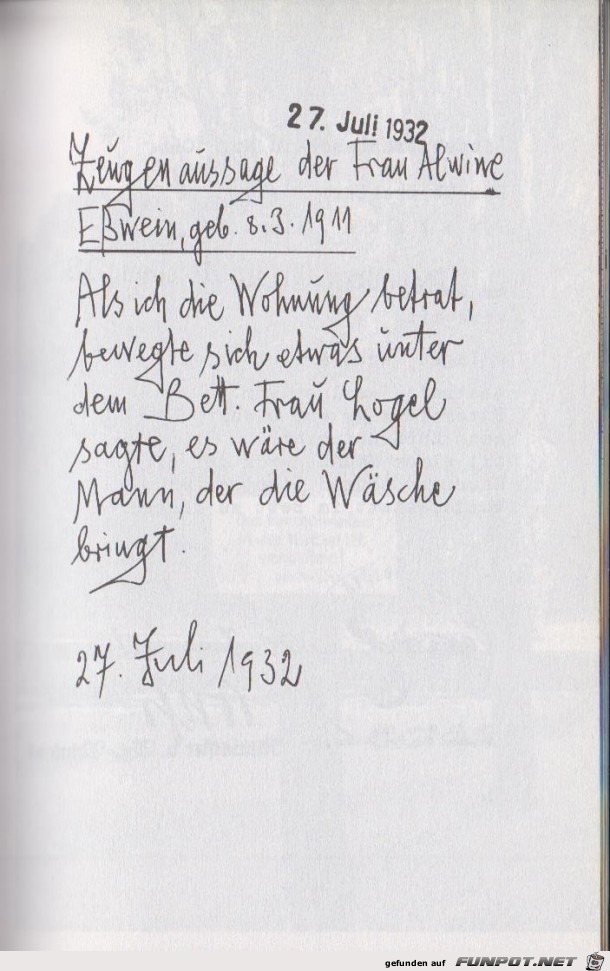 27. Juli 1932
Zeugenaussage der Frau Alwine
Eßwein, geb. 8.3.1911
Als ich die Wohnung betrat,
bewegte sich etwas unter
dem Bett. Frau Logel
sagte, es wäre der
Mann, der die Wäsche
bringt.
27. Juli 1932
gefunden auf FUNPOT.NET